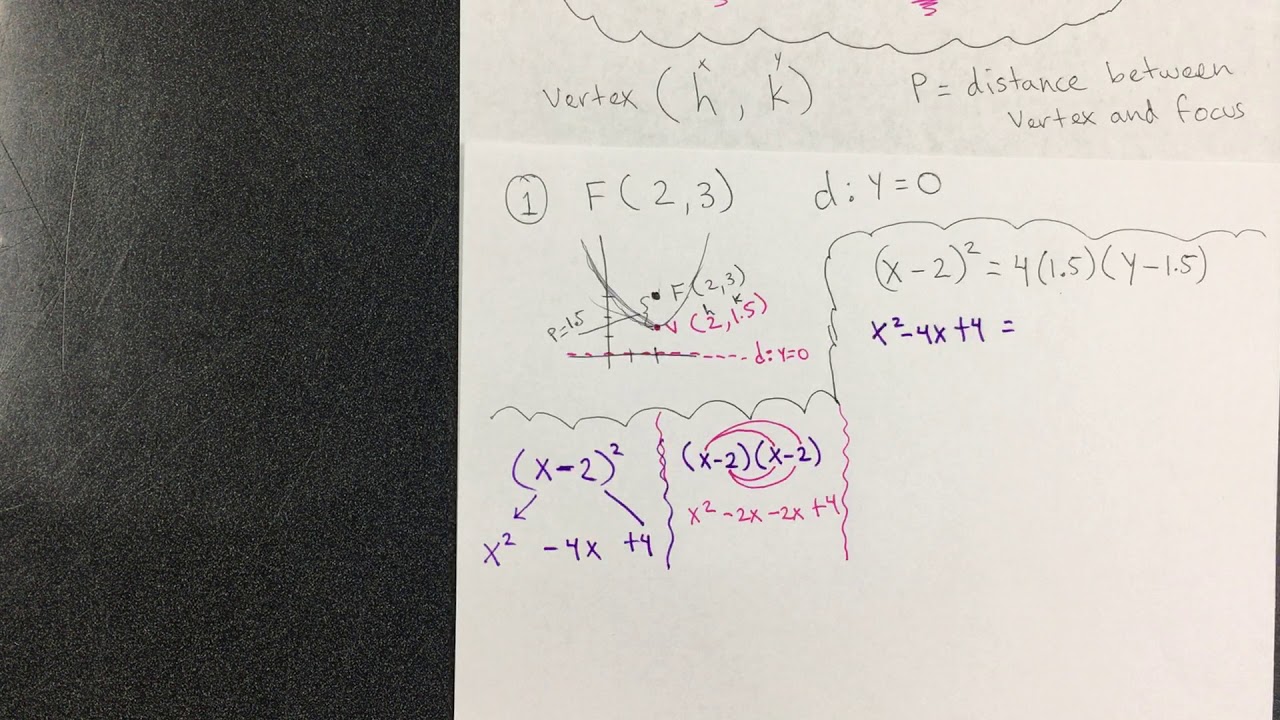 x y
Vertex (h, k)
P = distance between
Vertex and focus
① F(2,3) d: Y=0
(x-2)² = 4(1.5)(Y-1.5)
x²-4x+4 =
F(2,3)
h k
V (2,1.5)
P=1.5
d: Y=0
(x-2)²
x² -4x +4
(x-2)(x-2)
x² -2x -2x +4